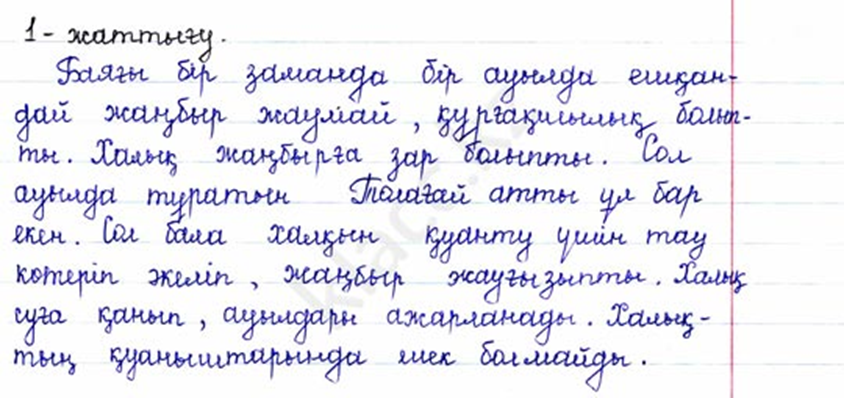 1 - жаттығу.
Баяғы бір заманда бір ауылда ешқан-
дай жаңбыр жаумай, құрғақшылық болып-
ты. Халық жаңбырға зар болыпты. Сол
ауылда тұратын Толағай атты ұл бар
екен. Сол бала халқын қуанту үшін тау
көтеріп әкеліп, жаңбыр жауғызыпты. Халық
суға қанып, ауылдары ажарланады. Халық-
тың қуаныштарында шек болмайды.